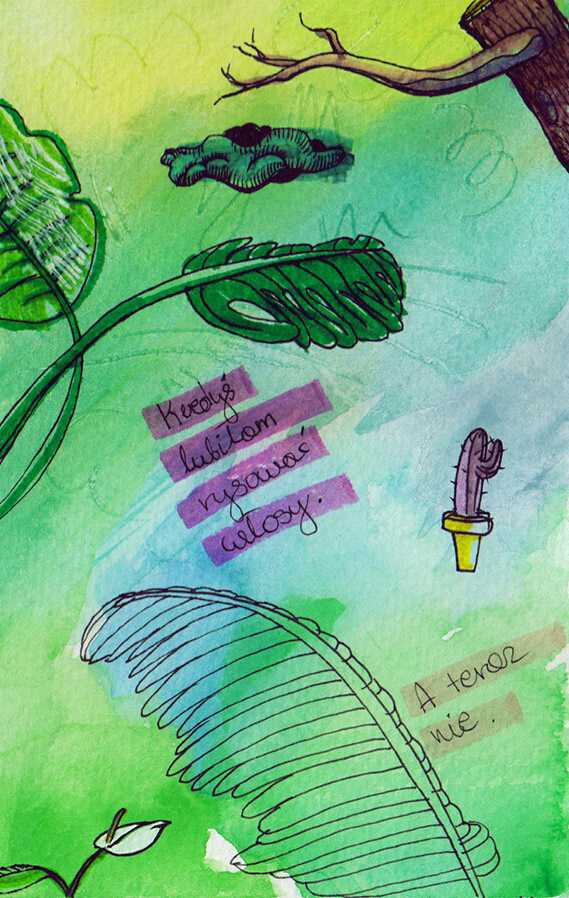 Kiedyś
lubiłam
rysować
włosy.
A teraz
nie.